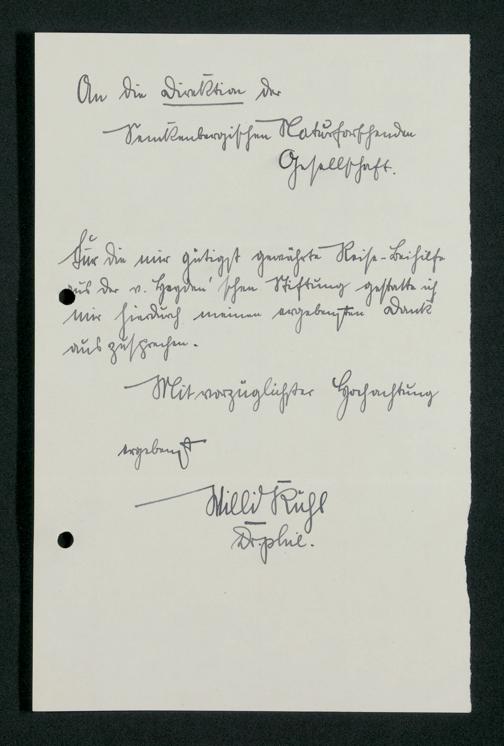 An die Direktion der
Senckenbergischen Naturforschenden
Gesellschaft.
Für die mir gütigst gewährte Reise-Beihilfe
aus der v. Heyden'schen Stiftung gestatte ich
mir hierdurch meinen ergebensten Dank
auszusprechen.
Mit vorzüglichster Hochachtung
ergebenst
Willi Kuhl
Dr. phil.